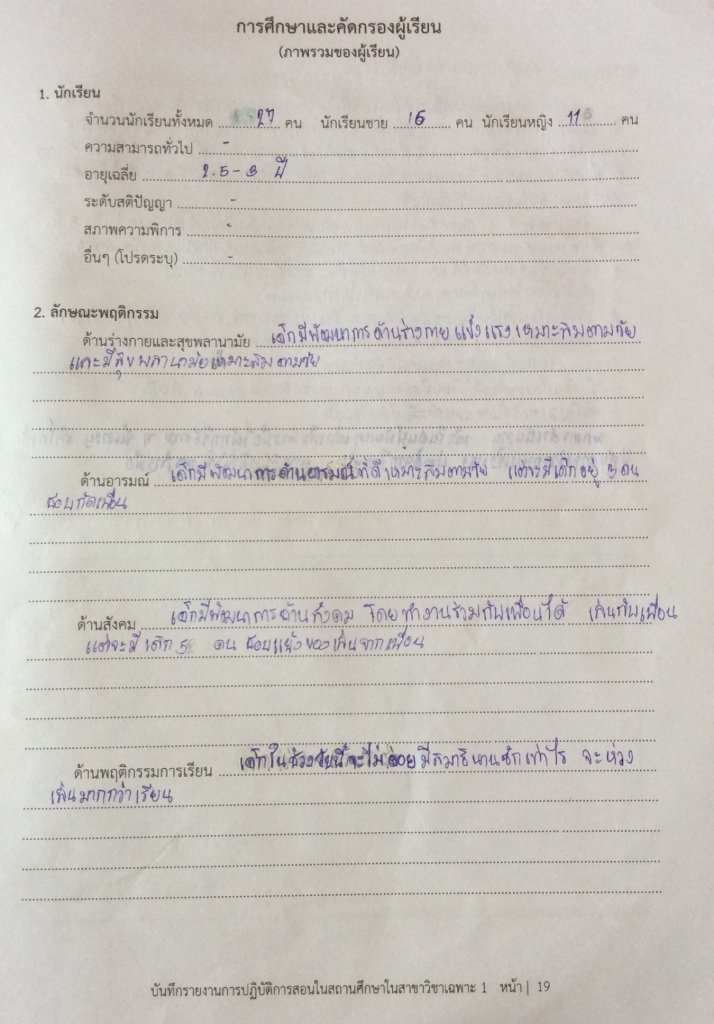 การศึกษาและคัดกรองผู้เรียน
(ภาพรวมของผู้เรียน)
1. นักเรียน
จำนวนนักเรียนทั้งหมด 27 คน นักเรียนชาย 16 คน นักเรียนหญิง 11 คน
ความสามารถทั่วไป -
อายุเฉลี่ย 2.5-3 ปี
ระดับสติปัญญา -
สภาพความพิการ -
อื่นๆ (โปรดระบุ) -
2. ลักษณะพฤติกรรม
ด้านร่างกายและสุขพลานามัย เด็กมีพัฒนาการด้านร่างกาย แข็งแรง เหมาะสมตามวัย
และมีสุขพลานามัยเหมาะสมตามวัย
ด้านอารมณ์ เด็กมีพัฒนาการด้านอารมณ์ที่ดี เหมาะสมตามวัย แต่จะมีเด็กอยู่ 3 คน
ชอบกัดเพื่อน
ด้านสังคม เด็กมีพัฒนาการด้านสังคม โดยทำงานร่วมกับเพื่อนได้ เล่นกับเพื่อน
แต่จะมีเด็ก 5 คน ชอบแย่งของเล่นจากเพื่อน
ด้านพฤติกรรมการเรียน เด็กในช่วงวัยนี้จะไม่ค่อยมีสมาธินานซักเท่าไร จะห่วง
เล่นมากกว่าเรียน
บันทึกรายงานการปฏิบัติการสอนในสถานศึกษาในสาขาวิชาเฉพาะ 1 หน้า | 19